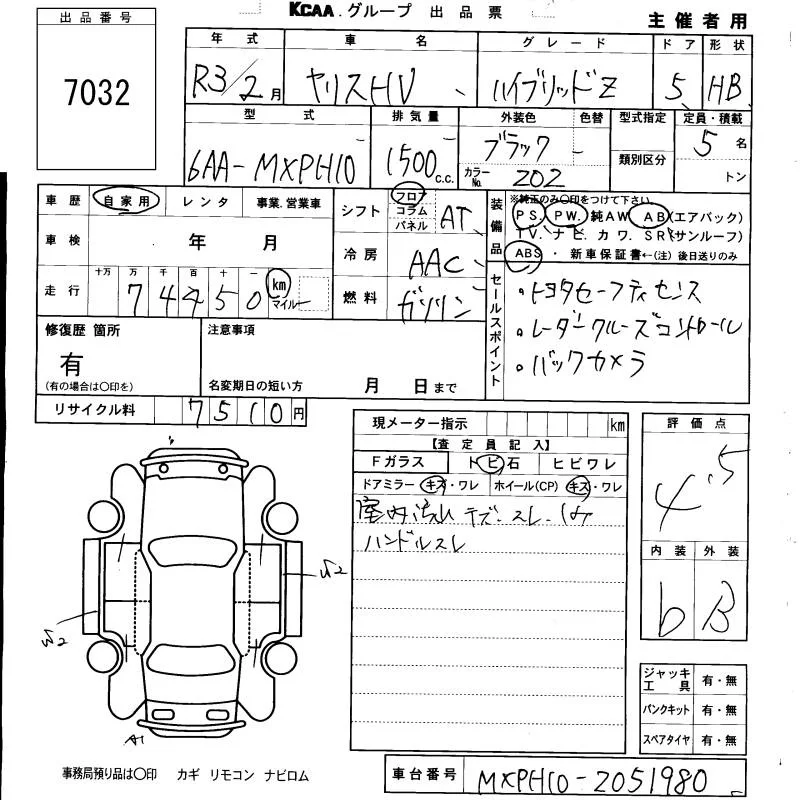 出品番号
7032
KCAA.グループ 出品票
主催者用
年式 車名 グレード ドア 形状
R3/2月 ヤリスHV ハイブリッドZ 5 HB
型式 排気量 外装色 色替 型式指定 定員・積載
6AA-MXPH10 1500c.c. ブラック - 5名
類別区分 トン
カラーNo. 202
車歴 自家用 レンタ 事業.営業車
シフト フロア コラム パネル AT
装備品 ※純正のみ〇印をつけて下さい。
PS. PW. 純AW AB(エアバック)
TV. ナビ カワ. SR(サンルーフ)
ABS ・ 新車保証書←(注)後日送りのみ
車検 年 月
冷房 AAC
走行 十万 万 千 百 十 一
74450 km マイル
燃料 ガソリン
セールスポイント
・トヨタセーフティセンス
・レーダークルーズコントロール
・バックカメラ
修復歴 箇所
有
(有の場合は〇印を)
注意事項
名変期日の短い方 月 日まで
リサイクル料 7510円
現メーター指示 km
【査定員記入】
Fガラス トビ石 ヒビワレ
ドアミラー キズ・ワレ ホイール(CP) キズ・ワレ
室内汚れ キズ・スレ・
ハンドルスレ
評価点
4.5
内装 外装
b B
W2
W2
A1
ジャッキ工具 有・無
パンクキット 有・無
スペアタイヤ 有・無
事務局預り品は〇印 カギ リモコン ナビロム
車台番号 MXPH10-2051980